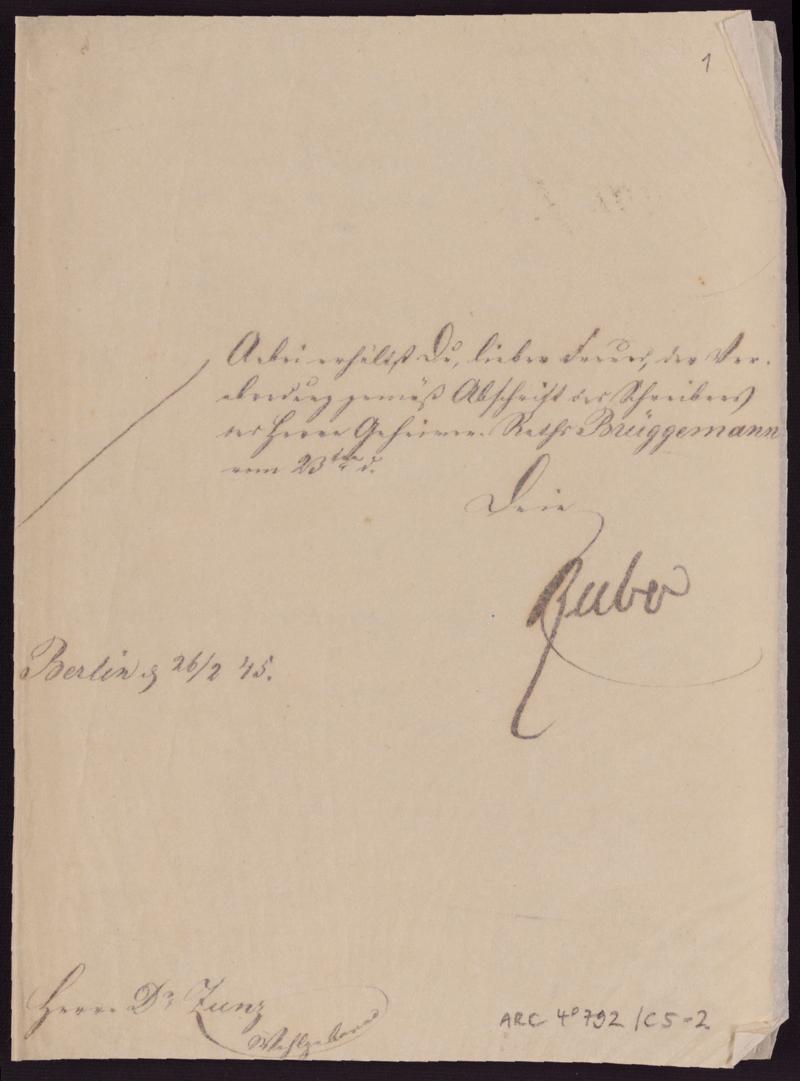 1
Anbei erhältst Du, lieber Freund, der Ver-
abredung gemäß Abschrift des Schreibens
des Herrn Geheimen Raths Brüggemann
vom 23ten d.
Dein
Rubo
Berlin d 26/2 45.
Herrn Dr Zunz
Wohlgeboren
ARC 4° 792 /C5-2